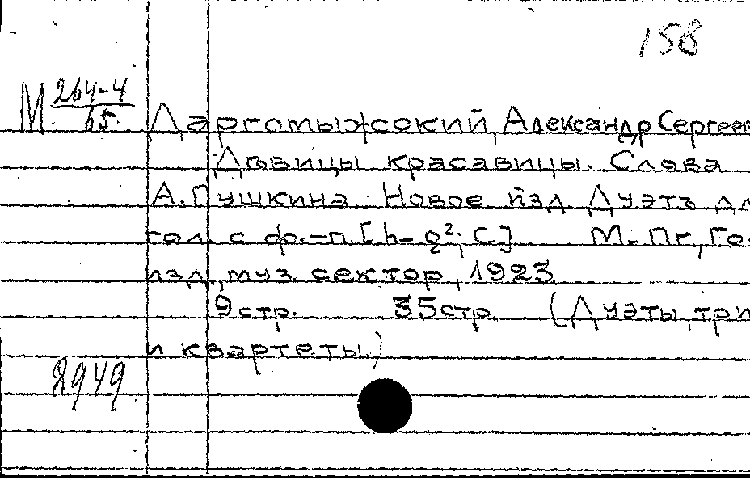 158
М 264-4
65.
Даргомыжский, Александр Сергеев
Девицы красавицы. Слова
А. Пушкина. Новое изд. Дуэтъ дл
гол. с ф.-п. [h- g²; C] М.-Пг, Го
изд., муз. сектор, 1923
9 стр. 35 стр. (Дуэты, три
и квартеты.)
8949